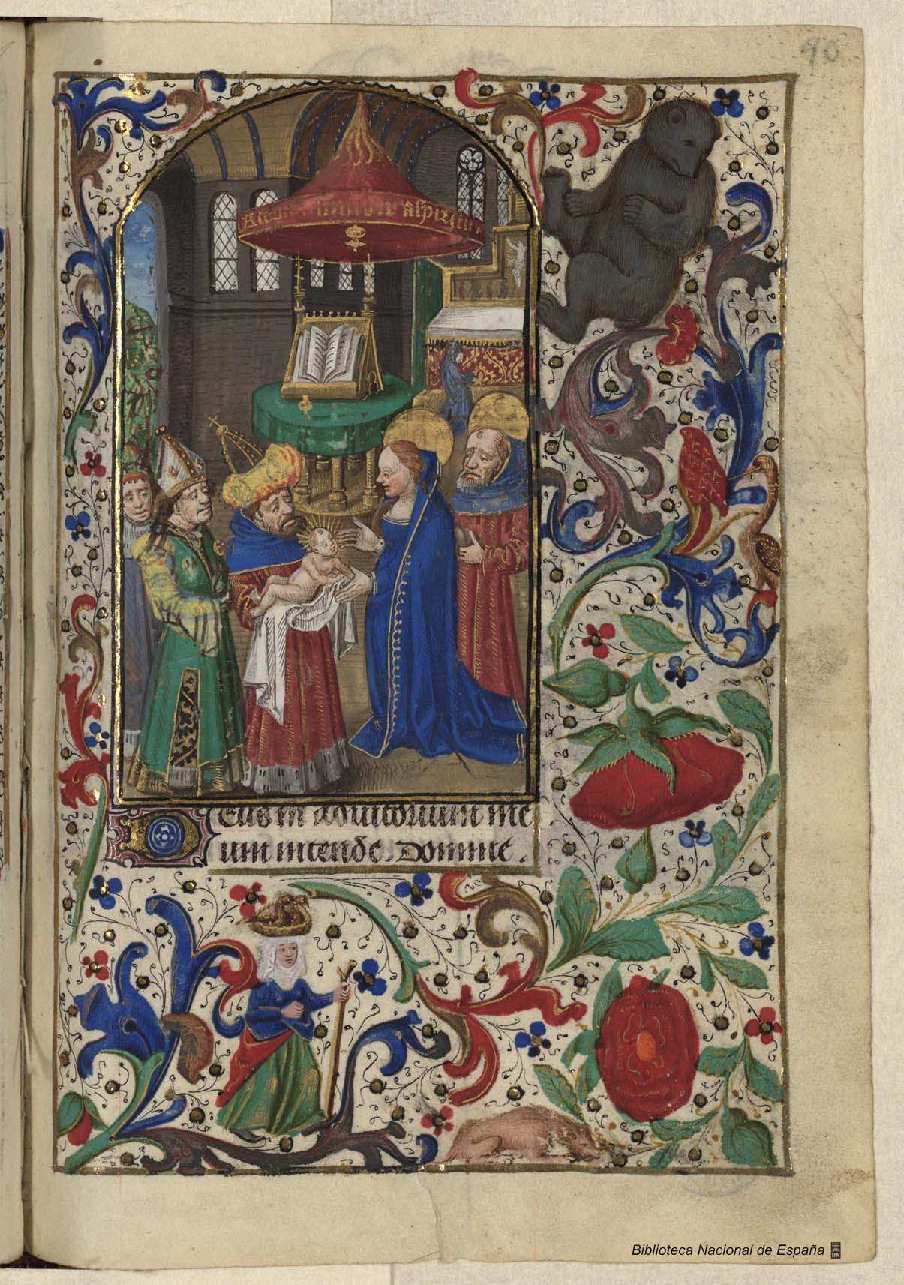 90
Deus in adiutorium me
um intende Domine
Biblioteca Nacional de España